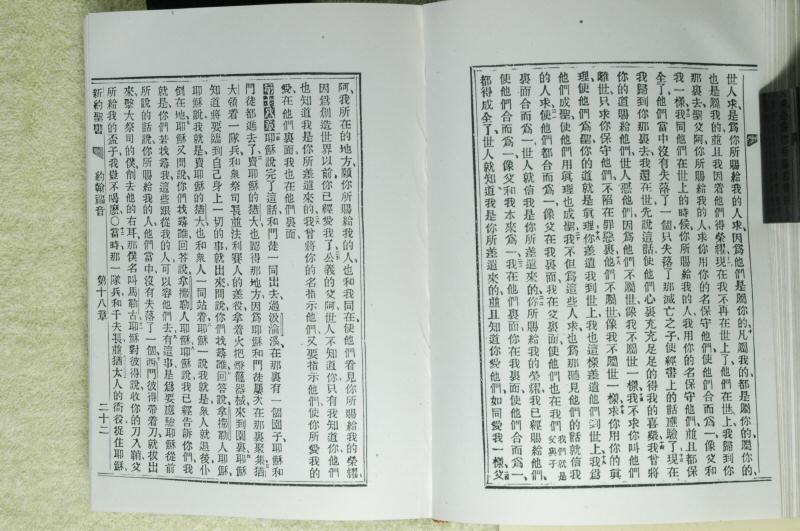 世人求是爲你所賜給我的人求因爲他們是屬你的凡屬我的都是屬你的屬你的
也是屬我的並且我因着他們得榮耀現在我不再在世上了他們在世上我歸到你
那裏去聖父阿你所賜給我的人求你用你的名保守他們使他們合而爲一像父和
我一樣我同他們在世上的時候你所賜給我的人我用你的名保守他們並且都保
全了他們當中沒有失落了一個只失落了那滅亡之子使經書上的話應驗了現在
我歸到你那裏去我還在世先說這話使他們心裏充充足足的得我的喜樂我曾將
你的道賜給他們世人惡他們因爲他們不屬世像我不屬世一樣我不求你叫他們
離世只求你保守他們不陷在罪惡裏他們不屬世像我不屬世一樣求你用你的眞
理使他們爲聖你的道就是眞理你差遣我到世上我也這樣差遣他們到世上我爲
他們成聖使他們用眞理也成聖我不但爲這些人求也爲那聽見他們的話就信我
的人求使他們都合而爲一像父在我裏面我在父裏面使他們也在我們我們就是父與子
裏面合而爲一使世人就信我是你所差遣來的你所賜給我的榮耀我已經賜給他們
使他們合而爲一像父和我本來爲一我在他們裏面你在我裏面使他們合而爲一
都得成全了世人就知道我是你所差遣來的並且知道你愛他們如同愛我一樣父
阿我所在的地方願你所賜給我的人也和我同在使他們看見你所賜給我的榮耀
因爲創造世界以前你已經愛我了公義的父阿世人不知道你只有我知道你他們
也知道我是你所差遣來的我曾將你的名指示他們又要指示他們使你所愛我的
愛在他們裏面我也在他們裏面
第十八章耶穌說完了這話和門徒一同出去過汲淪溪在那裏有一個園子耶穌和
門徒都進去了賣耶穌的猶大也認得那地方因爲耶穌和門徒屢次在那裏聚集猶
大領着一隊兵和衆祭司長並法利賽人的差役拿着火把燈籠器械來到園裏耶穌
知道將要臨到自己身上一切的事就出來問說你們找尋誰回答說拿撒勒人耶穌
耶穌說我就是賣耶穌的猶大也和衆人一同站着耶穌一說我就是衆人就退後仆
倒在地耶穌又問說你們找尋誰回答說拿撒勒人耶穌耶穌說我已經告訴你們我
就是你們若找尋我這些跟從我的人可以容他們去有這事是爲要應驗耶穌從前
所說的話說你所賜給我的人他們當中沒有失落了一個西門彼得帶着刀就拔出
來擊大祭司的僕削去他的右耳那僕名叫馬勒古耶穌對彼得說收你的刀入鞘父
所給我的杯子我豈不喝麼○當時那一隊兵和千夫長並猶太人的衙役捉住耶穌
新約聖書 約翰福音 第十八章 二十二